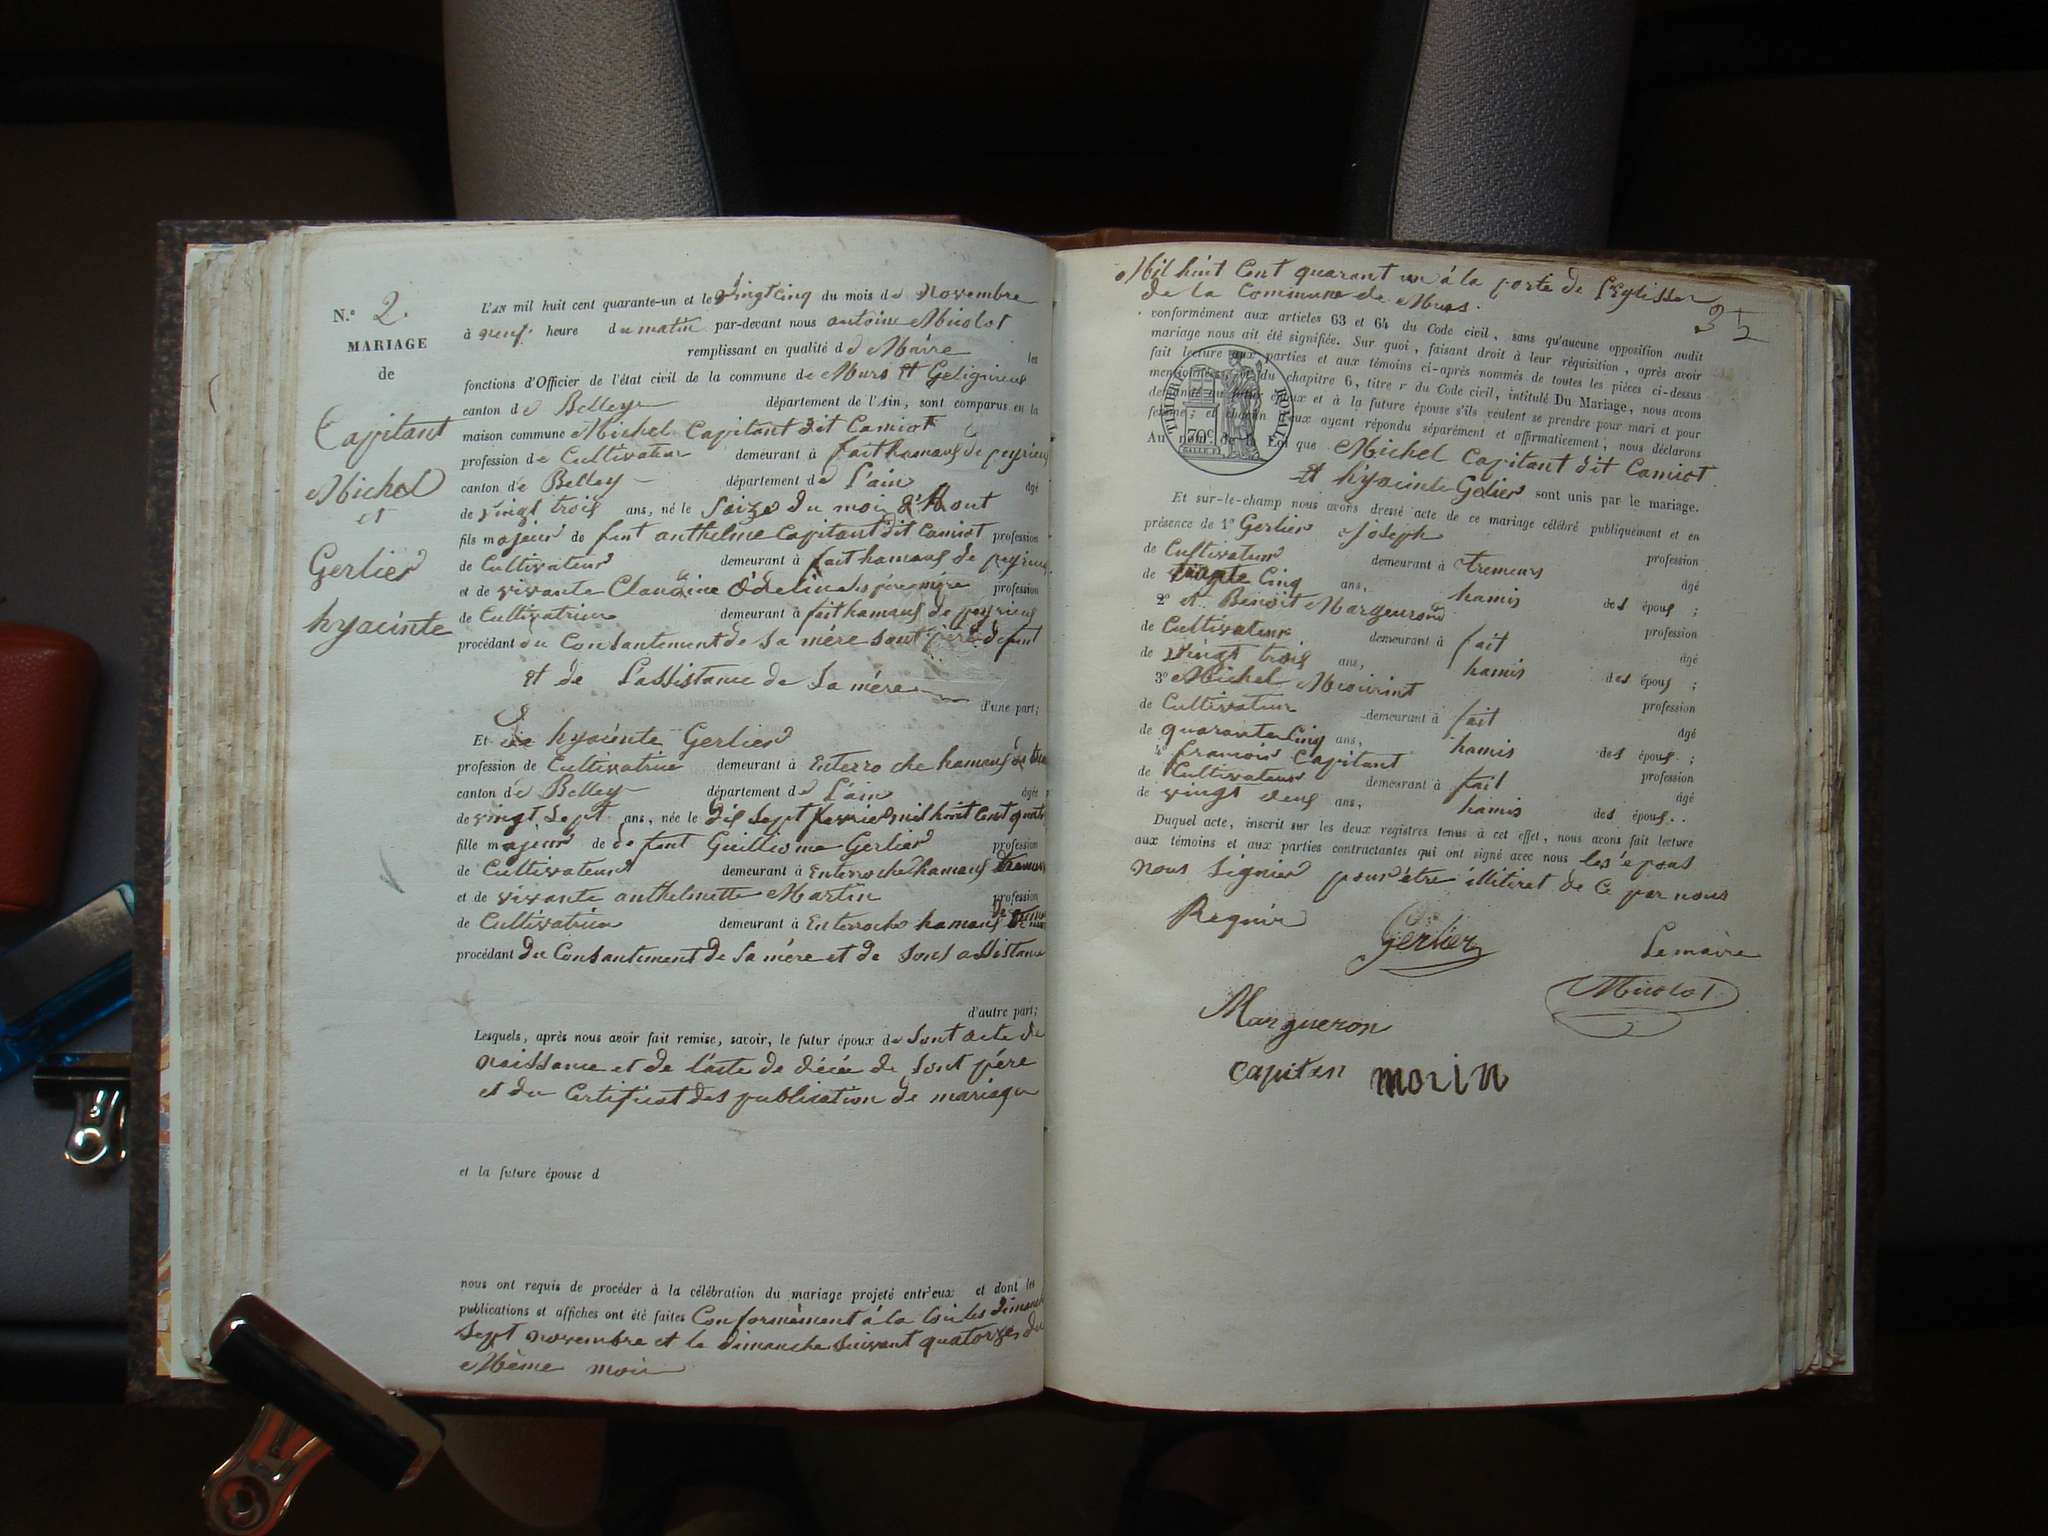 N.º 2.
MARIAGE
de
Capitant
Michel
et
Gerlier
hyacinte
L'AN mil huit cent quarante-un et le vingt cinq du mois de novembre
à neuf heure du matin par-devant nous antoine Micolot
remplissant en qualité d e Maire les
fonctions d'Officier de l'état civil de la commune de Murs et Geligneux
canton de Belley département de l'Ain, sont comparus en la
maison commune Michel Capitant dit Camiot
profession de Cultivateur demeurant à fait hamaus de peyrieu
canton de Belley département de L'ain âgé
de vingt trois ans, né le Seize du mois d'Aout
fils majeur de feut anthelme Capitant dit Camiot profession
de Cultivateur demeurant à fait hamaus de peyrieu
et de vivante Claudine Odelin ses père mère profession
de Cultivatrice demeurant à fait hamaus de peyrieus
procédant du Consantement de sa mére sont père defunt
et de L'assistance de sa mére
d'une part;
Et hyacinte Gerlier
profession de Cultivatrice demeurant à Enterroche hamaus de
canton de Belley département de L'ain âgée
de vingt sept ans, née le dis sept fevrier mil huit Cent quato
fille majeur de de feut Guilliome Gerlier profession
de Cultivateur demeurant à Enterroche hamaus
et de vivante anthelmette Martin profession
de Cultivatrice demeurant à Enterroche hamaus de
procédant du Consantement de sa mére et de sons assistance
d'autre part;
Lesquels, après nous avoir fait remise, savoir, le futur époux de sont acte de
naissance et de l'acte de décée de sont père
et du Certificat des publication de mariage
et la future épouse d
nous ont requis de procéder à la célébration du mariage projeté entr'eux et dont les
publications et affiches ont été faites Conformément à la loi les dimanche
Sept novembre et le dimanche suivant quatorze du
Mème mois
Mil huit Cent quarant un à la porte de l'Eglisse
de la Commune de Murs.
35
conformément aux articles 63 et 64 du Code civil, sans qu'aucune opposition audit
mariage nous ait été signifiée. Sur quoi, faisant droit à leur réquisition, après avoir
fait lecture aux parties et aux témoins ci-après nommés de toutes les pièces ci-dessus
mentionnées, et du chapitre 6, titre v du Code civil, intitulé Du Mariage, nous avons
demandé au futur époux et à la future épouse s'ils veulent se prendre pour mari et pour
femme; et chacun d'eux ayant répondu séparément et affirmativement, nous déclarons
TIMBRE ROYAL
70c
Au nom de la Loi que Michel Capitant dit Camiot
et hyacinte Gerlier sont unis par le mariage.
Et sur-le-champ nous avons dressé acte de ce mariage célébré publiquement et en
présence de 1º Gerlier Joseph profession
de Cultivateur demeurant à tremeurs âgé
de trante Cinq ans, hamis des épous;
2º et Benoit Margueron profession
de Cultivateur demeurant à fait âgé
de vingt trois ans, hamis des épous;
3º Michel profession
de Cultivateur demeurant à fait âgé
de quarante Cinq ans, hamis des épous;
4º francois Capitant profession
de Cultivateur demeurant à fait âgé
de vingt deus ans, hamis des épous.
Duquel acte, inscrit sur les deux registres tenus à cet effet, nous avons fait lecture
aux témoins et aux parties contractantes qui ont signé avec nous les épous
nous Signier pour être illitiret de Ce par nous
Requir
Gerlier
Lemaire
Micolot
Margueron
Capitan morin